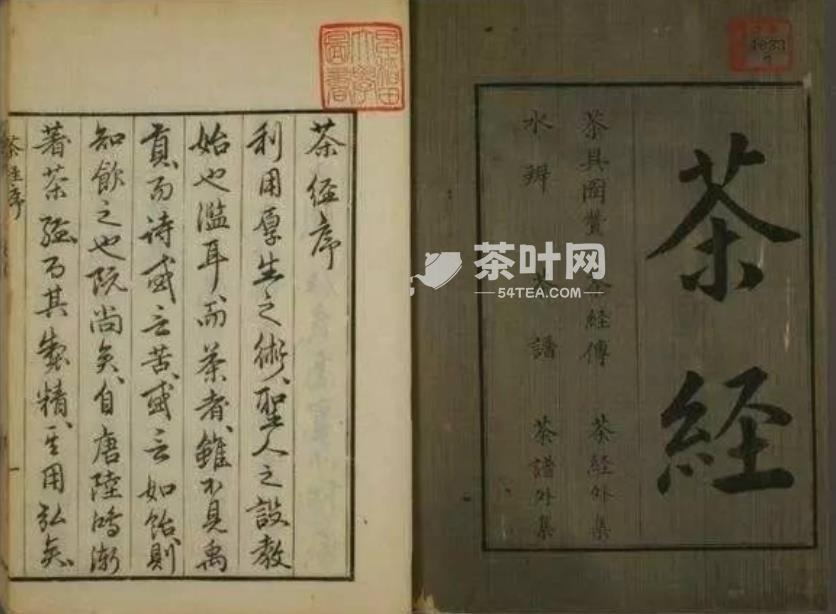 茶経
茶具圖贊 経傳 茶経外集
水辨 譜 茶譜外集
茶叶网
54TEA.COM
早稻田大學圖書
茶经序
利用厚生之術、聖人之設教
始也濫耳、而茶者、雖不見禹
貢、而诗或云苦、或云如飴、則
知飲之也既尚矣、自唐陸鴻漸
著茶経、而其製精、其用弘矣
茶経序